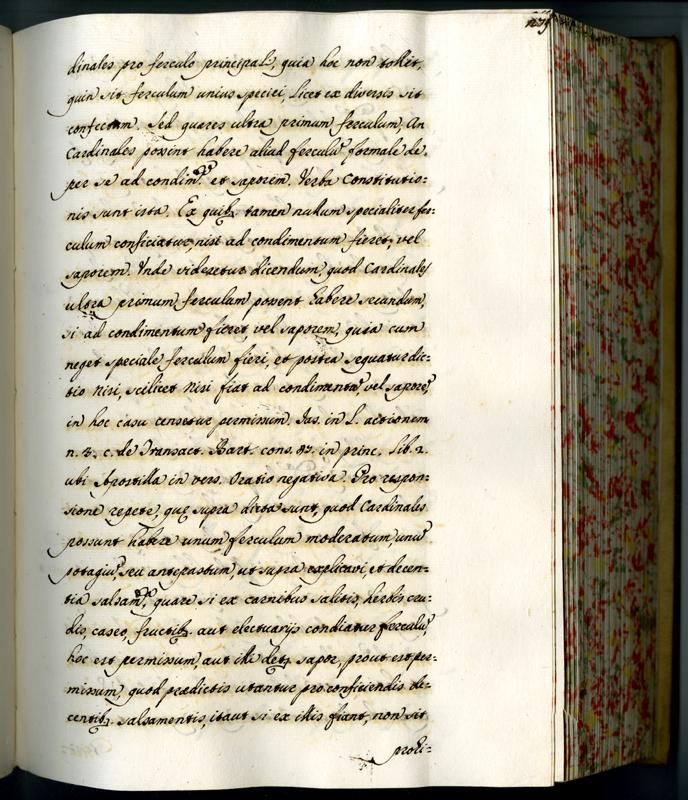 dinales pro ferculo principali, quia hoc non tollit,
quin sit ferculum unius speciei, licet ex diversis sit
confectum. Sed quæres ultra primum ferculum, An
Cardinales possint habere aliud ferculũ formale de
per se ad condimtũ et saporem. Verba Constitutio=
nis sunt ista. Ex quib; tamen nullum specialiter fer=
culum conficiatur, nisi ad condimentum fieret, vel
saporem. Vnde videretur dicendum, quod Cardinales
ultra primum ferculum possent habere secundum,
si ad condimentum fieret, vel saporem, quia cum
neget speciale ferculum fieri, et postea sequatur dic=
tio Nisi, scilicet Nisi fiat ad condimentũ, vel saporẽ,
in hoc casu censetur permissum. Jas. in L. actionem
n. 3. c. de Transact. Bart. cons. 87. in princ. lib. 2.
ubi Apostilla in vers. Oratio negativa. Pro respon=
sione repete, quę supra dixta sunt, quod Cardinales
possunt habere unum ferculum moderatum, unũ
potagiũ, seu antepastum, ut supra explicavi, et decen=
tia salsamtã, quare si ex carnibus salitis, herbis cru=
dis, caseo, fructib; aut electuarijs condiatur ferculũ,
hoc est permissum, aut illi detr sapor, prout est per=
missum, quod prædictis utantur pro conficiendis de=
centib; salsamentis, itaut si ex illis fiant, non sit
prohi=